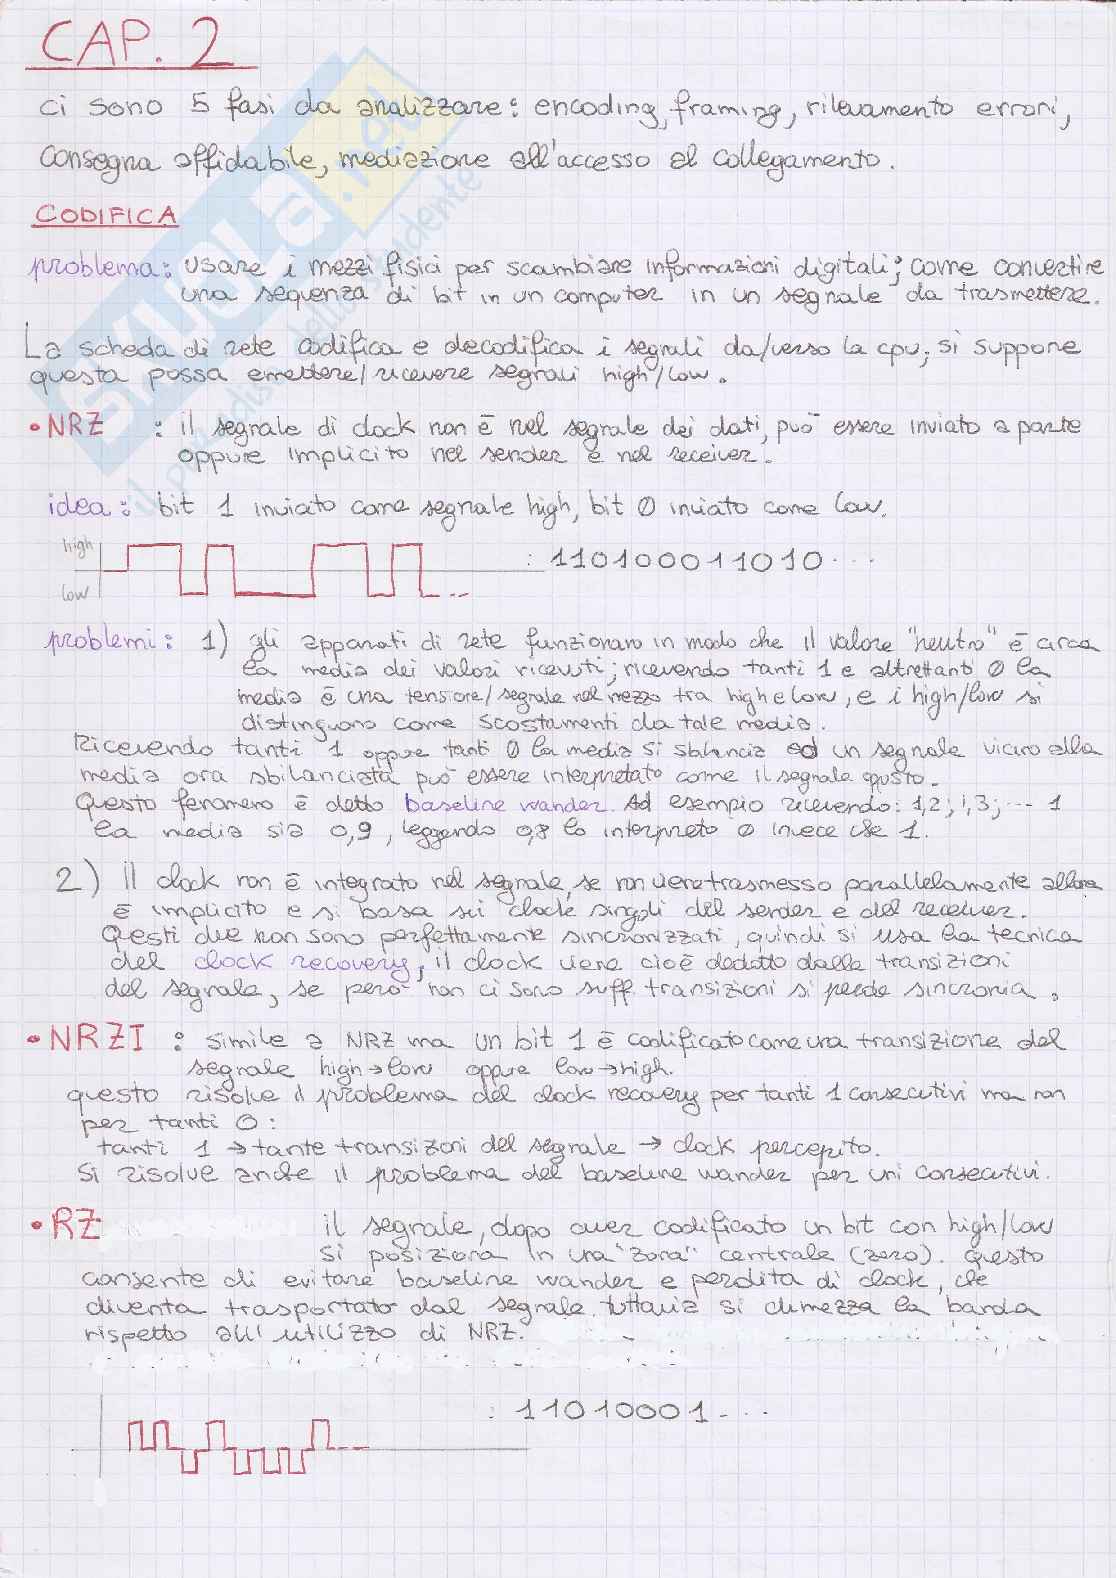 CAP. 2
ci sono 5 fasi da analizzare: encoding, framing, rilevamento errori,
consegna affidabile, mediazione all'accesso al collegamento.
CODIFICA
problema: usare i mezzi fisici per scambiare informazioni digitali; come convertire
una sequenza di bit in un computer in un segnale da trasmettere.
La scheda di rete codifica e decodifica i segnali da/verso la cpu; si suppone
questa possa emettere/ricevere segnali high/low.
• NRZ : il segnale di clock non è nel segnale dei dati, può essere inviato a parte
oppure implicito nel sender e nel receiver.
idea: bit 1 inviato come segnale high, bit 0 inviato come low.
high
low
: 110100011010...
problemi: 1) gli apparati di rete funzionano in modo che il valore "neutro" è circa
la media dei valori ricevuti; ricevendo tanti 1 e altrettanti 0 la
media è una tensione/segnale nel mezzo tra high e low, e i high/low si
distinguono come scostamenti da tale media.
Ricevendo tanti 1 oppure tanti 0 la media si sbilancia ed un segnale vicino alla
media ora sbilanciata può essere interpretato come il segnale opposto.
Questo fenomeno è detto baseline wander. Ad esempio ricevendo: 1,2; 1,3; ... 1
la media sia 0,9, leggendo 0,8 lo interpreto 0 invece che 1.
2) Il clock non è integrato nel segnale, se non viene trasmesso parallelamente allora
è implicito e si basa sui clock singoli del sender e del receiver.
Questi due non sono perfettamente sincronizzati, quindi si usa la tecnica
del clock recovery, il clock viene cioè dedotto dalle transizioni
del segnale, se però non ci sono suff. transizioni si perde sincronia.
• NRZI : simile a NRZ ma un bit 1 è codificato come una transizione del
segnale high→low oppure low→high.
questo risolve il problema del clock recovery per tanti 1 consecutivi ma non
per tanti 0:
tanti 1 → tante transizioni del segnale → clock percepito.
Si risolve anche il problema del baseline wander per uni consecutivi.
• RZ il segnale, dopo aver codificato un bit con high/low
si posiziona in una "zona" centrale (zero). Questo
consente di evitare baseline wander e perdita di clock, che
diventa trasportato dal segnale. tuttavia si dimezza la banda
rispetto all'utilizzo di NRZ.
: 11010001...
SKUOLA.net
il paradiso dello studente